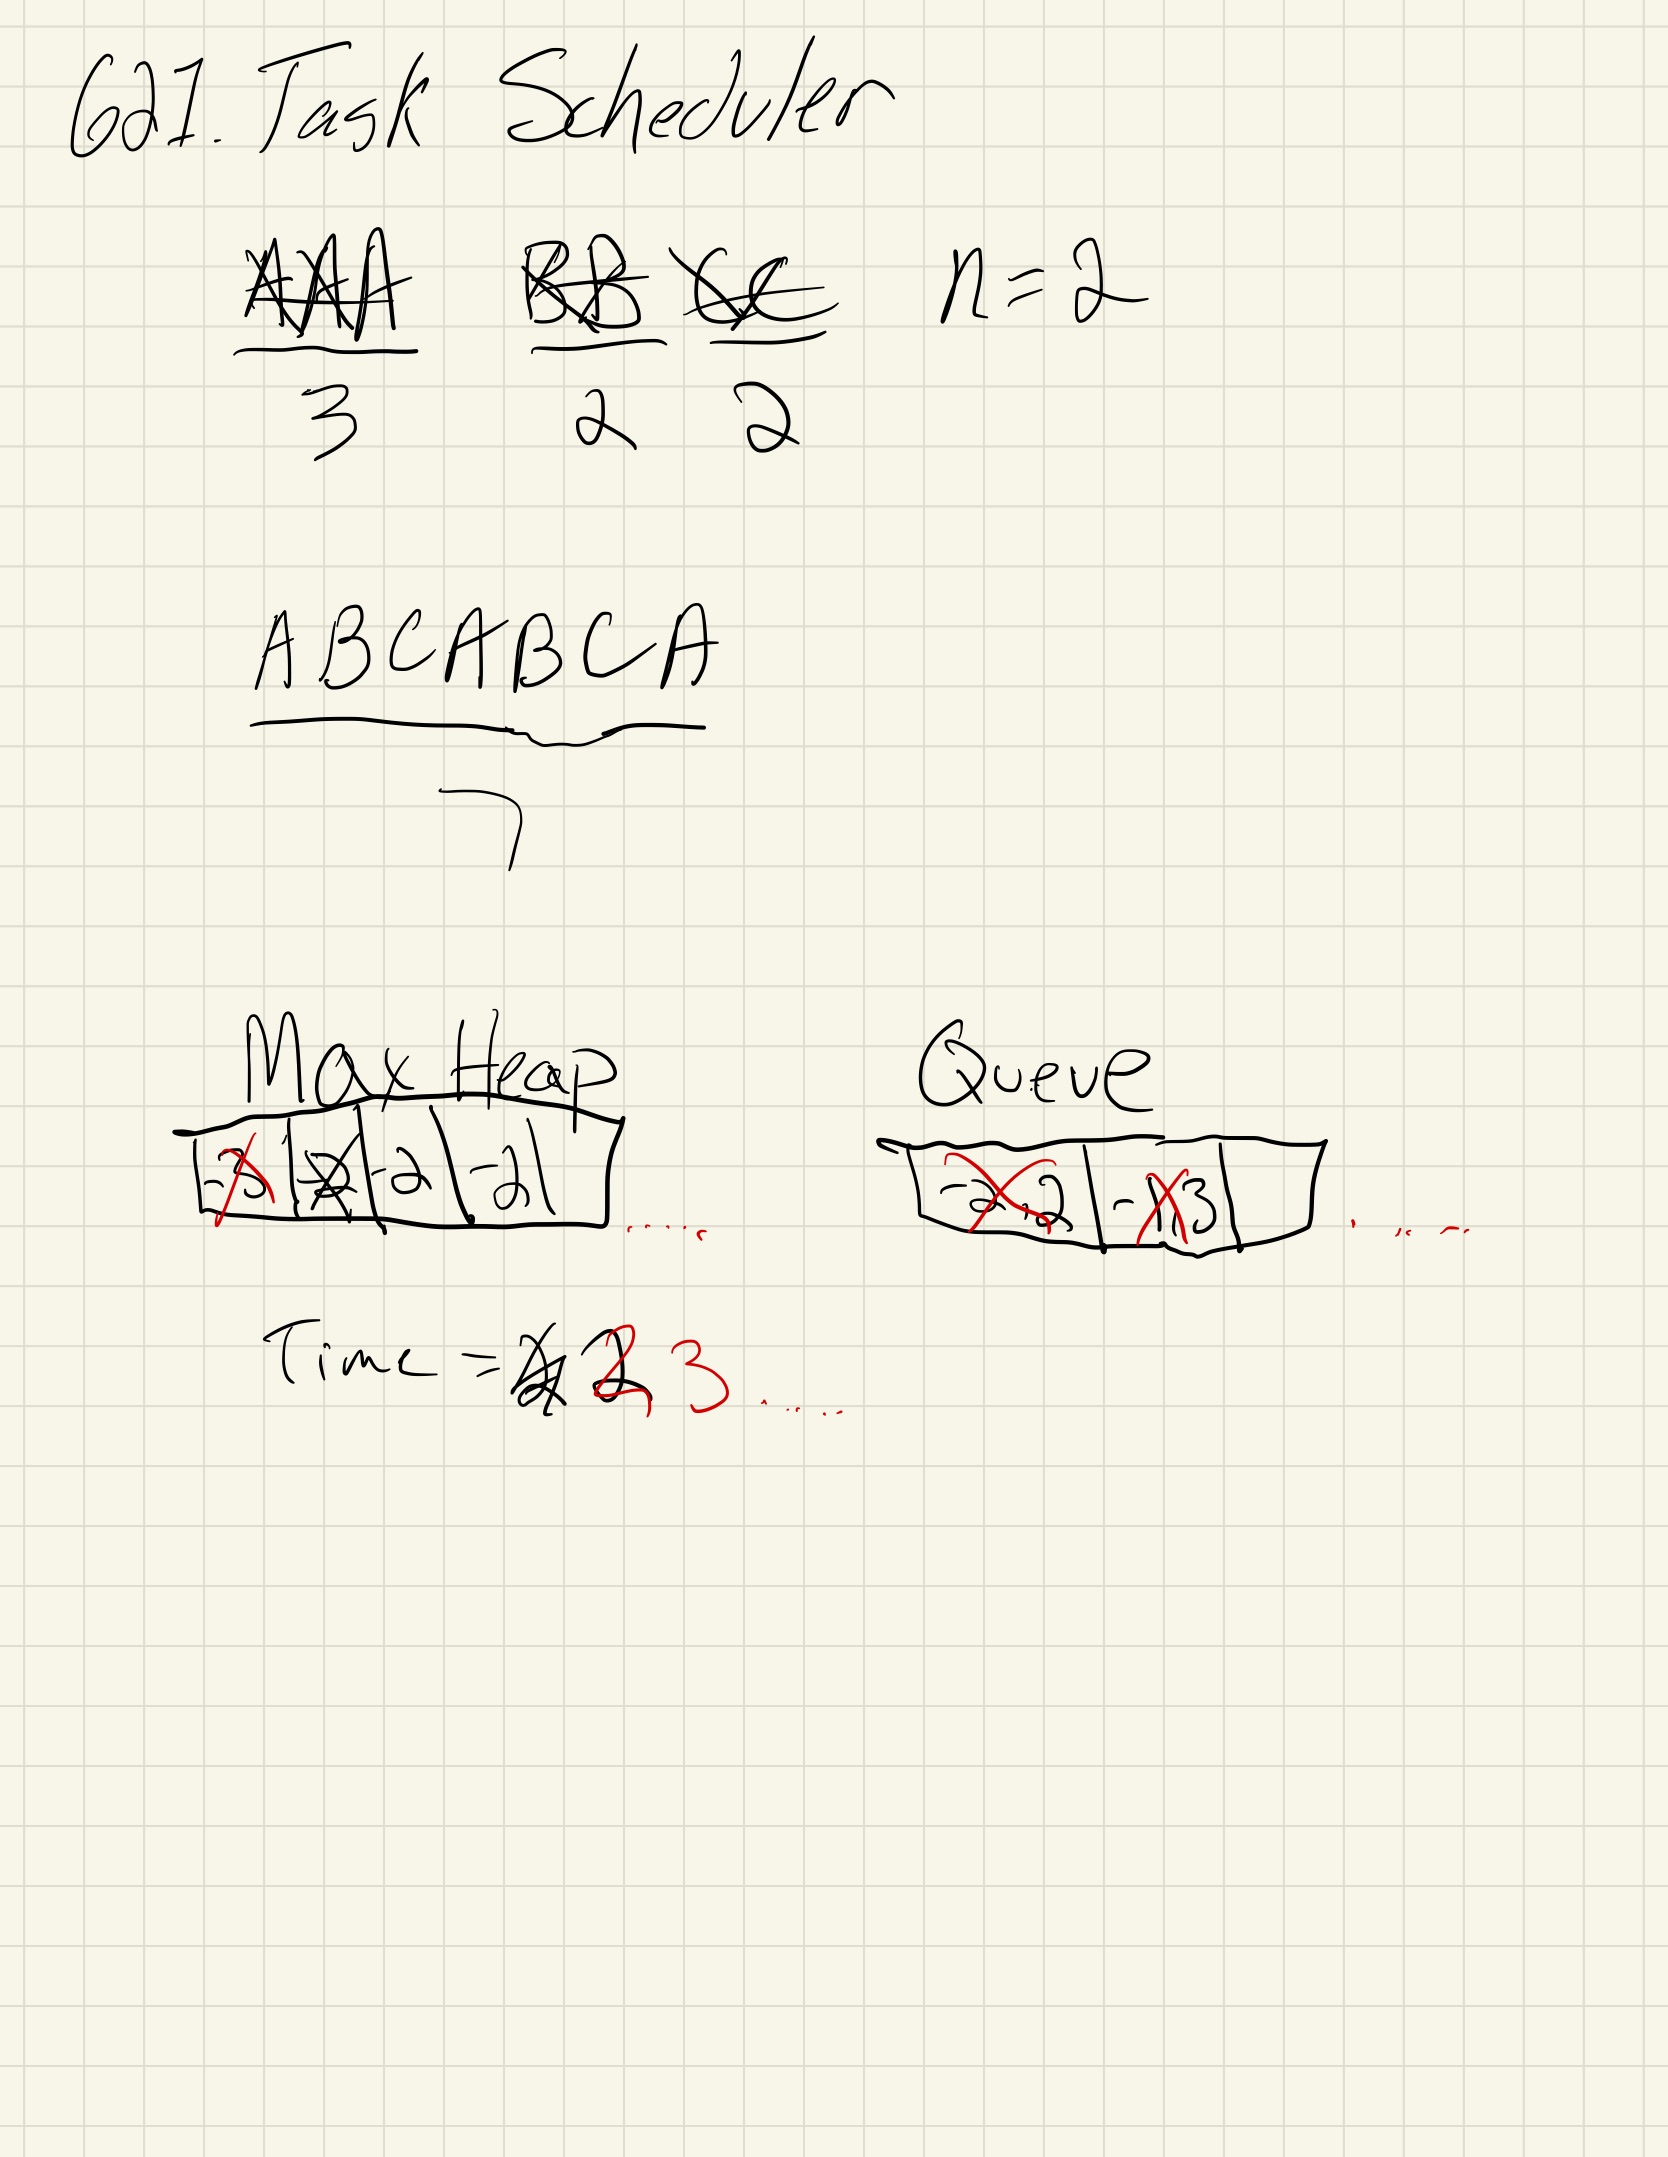 621. Task Scheduler
AAA BB CC n=2
3 2 2
ABCABCA
7
Max Heap Queue
-3 -2 -2 -2, 2 -1, 3
Time = 2 3 .....